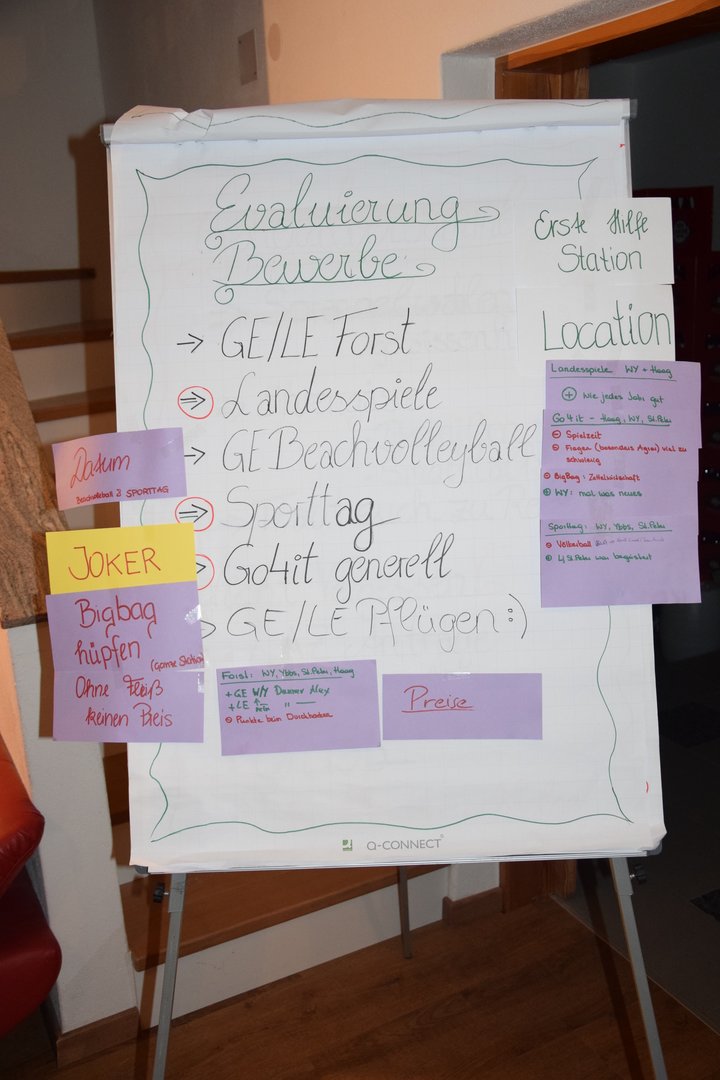 Evaluierung
Bewerbe
→ GE/LE Forst
→ Landesspiele
→ GE Beachvolleyball
→ Sporttag
→ Go4it generell
→ GE/LE Pflügen :)
Erste Hilfe
Station
Location
Landesspiele WY + Haag
+ wie jedes Jahr gut
Go4it - Haag, WY, St. Peter
- Spielzeit
- Fragen (besonders Agrar) viel zu
schwierig
- BigBag: Zettelwirtschaft
+ WY: mal was neues
Sporttag: WY, Ybbs, St. Peter
- Völkerball
+ LJ St. Peter war begeistert
Datum
Beachvolleyball & SPORTTAG
JOKER
Bigbag
hüpfen
(Game Station)
Ohne Fleiß
keinen Preis
Forst: WY, Ybbs, St. Peter, Haag
+ GE WY Danner Alex
+ LE " —
- Punkte beim Durchhacken
Preise
Q-CONNECT